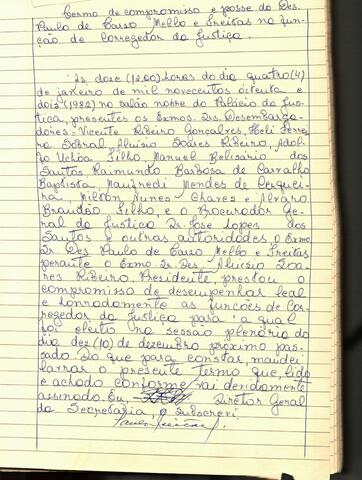 Termo de compromisso e posse do Des.
Paulo de Tarso Mello e Freitas na fun-
ção de Corregedor da Justiça.
Às doze (12,00) horas do dia quatro (4)
de janeiro de mil novecentos oitenta e
dois (1982) no salão nobre do Palácio da Jus-
tiça, presentes os Exmos. Srs. Desembarga-
dores - Vicente Ribeiro Gonçalves, Heli Ferrei
ra Sobral, Aluísio Soares Ribeiro, Adol-
fo Uchôa Filho, Manuel Belisário dos
Santos, Raimundo Barbosa de Carvalho
Baptista, Manfredi Mendes de Cerquei-
ra, Milson Nunes Chaves e Álvaro
Brandão Filho, e o Procurador Ge-
ral da Justiça Dr. José Lopes dos
Santos e outras autoridades, o Exmo.
Sr. Des. Paulo de Tarso Mello e Freitas
perante o Exmo. Sr. Des. Aluísio Soa-
res Ribeiro, Presidente, prestou o
compromisso de desempenhar leal
e honradamente as funções de Cor-
regedor da Justiça para a qual
foi eleito na sessão plenária do
dia dez (10) de dezembro próximo pas-
sado. Do que para constar, mandei
lavrar o presente termo que, lido
e achado conforme, vai devidamente
assinado. Eu, Diretor Geral
da Secretaria, o subscrevi.